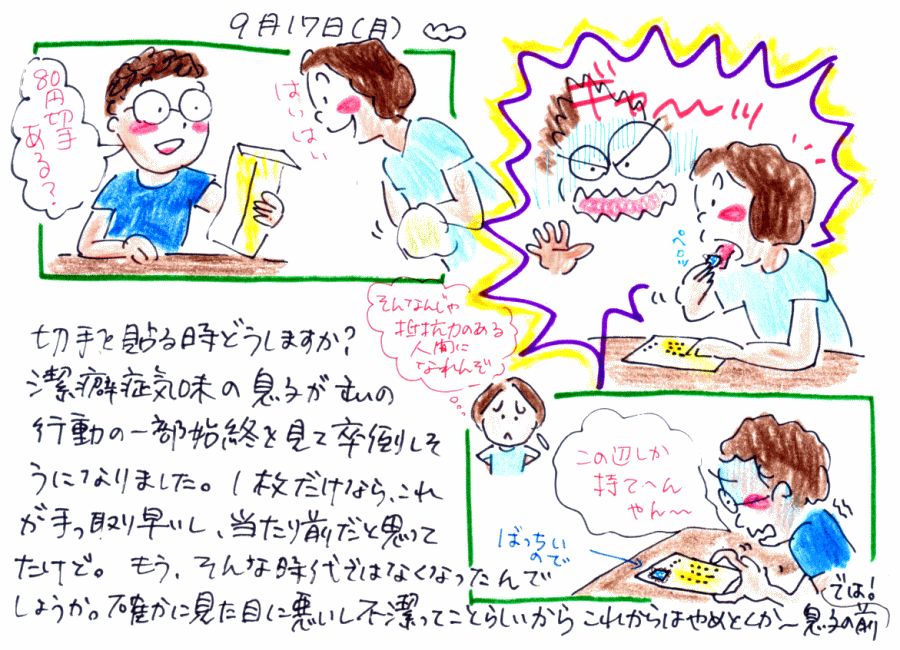 9月17日(月)
80円切手
ある?
はいはい
ギャ〜〜ッ
ペロッ
そんなんじゃ
抵抗力のある
人間に
なれんぞ
この辺しか
持てへん
やん〜
ばっちい
ので
切手を貼る時どうしますか?
潔癖症気味の息子がむぃの
行動の一部始終を見て卒倒しそ
うになりました。1枚だけなら、これ
が手っ取り早いし、当たり前だと思って
たけど。もう、そんな時代ではなくなったんで
しょうか。確かに見た目に悪いし不潔ってことらしいから これからはやめとくか〜息子の前
では!